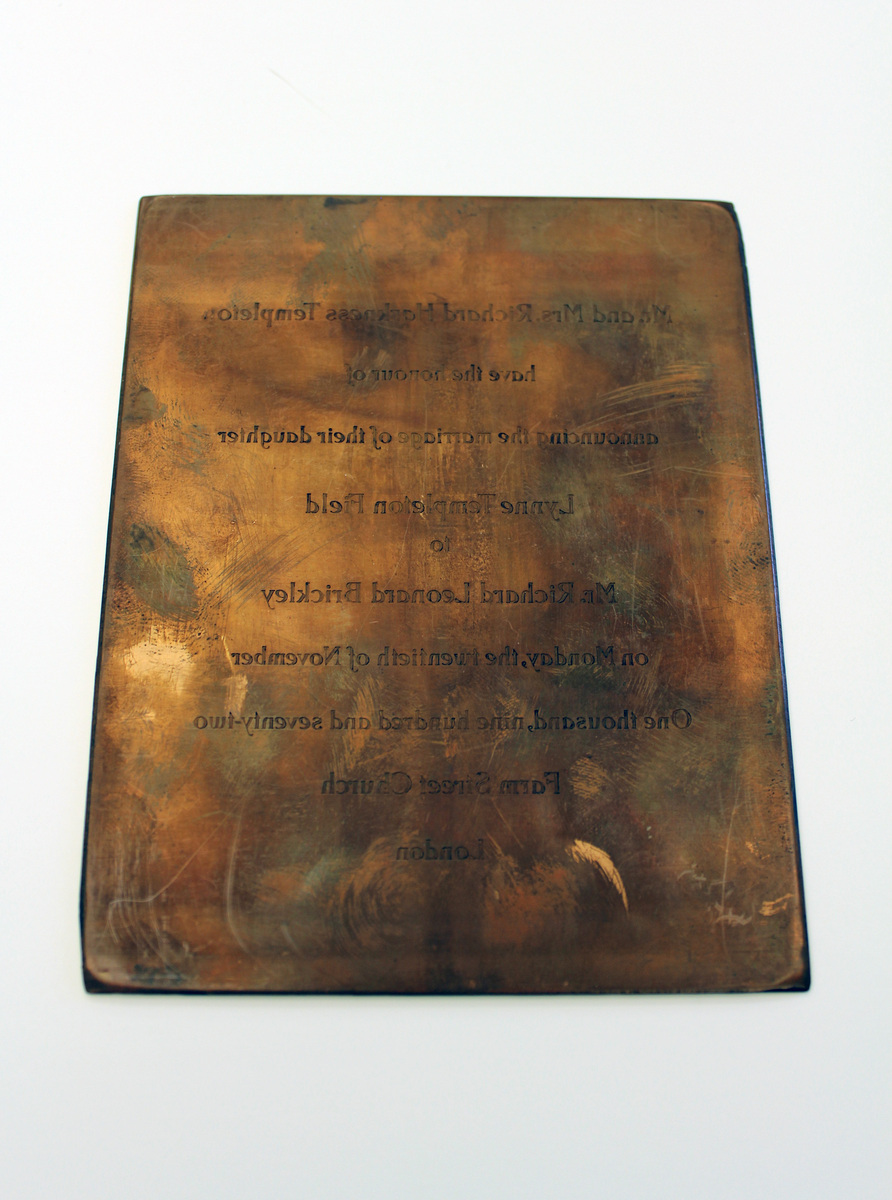 Mr. and Mrs. Richard Harkness Templeton
have the honour of
announcing the marriage of their daughter
Lynne Templeton Field
to
Mr. Richard Leonard Brickley
on Monday, the twentieth of November
One thousand, nine hundred and seventy-two
Farm Street Church
London